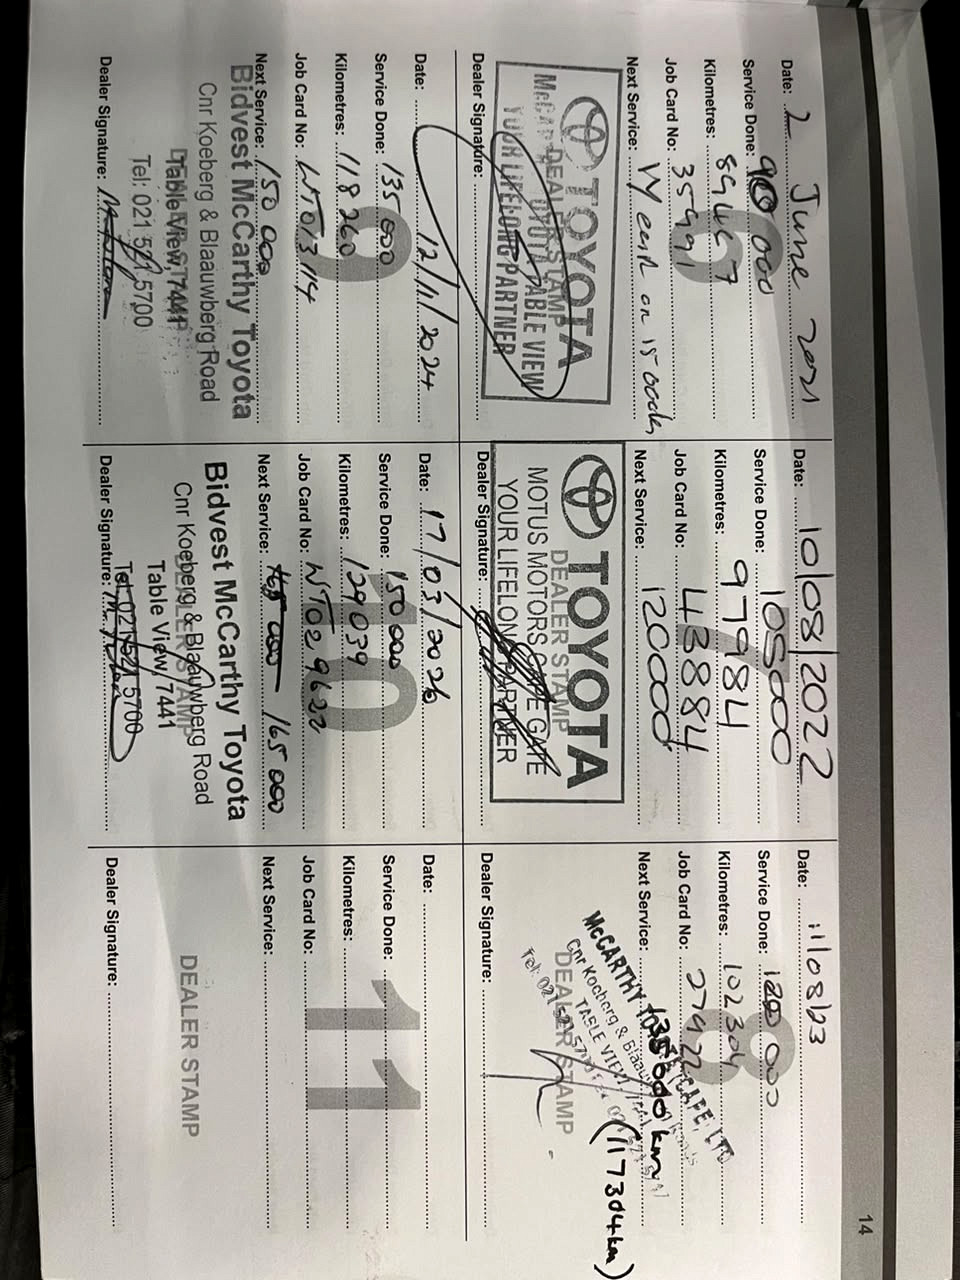 14
6
Date: 2 June 2021
Service Done: 90 000
Kilometres: 89467
Job Card No: 35991
Next Service: 1 Year or 15 000km
TOYOTA
DEALER STAMP
McCARTHY TOYOTA TABLE VIEW
YOUR LIFELONG PARTNER
Dealer Signature:
7
Date: 10/08/2022
Service Done: 105000
Kilometres: 97984
Job Card No: 43884
Next Service: 120000
TOYOTA
DEALER STAMP
MOTUS MOTORS CAPE GATE
YOUR LIFELONG PARTNER
Dealer Signature:
8
Date: 11/08/23
Service Done: 120 000
Kilometres: 102304
Job Card No: 27922
Next Service: 135000 km (117304km)
McCARTHY
Cnr Koeberg &
TABLE VIEW
Tel: 021
DEALER STAMP
Dealer Signature:
9
Date: 12/11/2024
Service Done: 135 000
Kilometres: 118260
Job Card No: WT013114
Next Service: 150 000
Bidvest McCarthy Toyota
Cnr Koeberg & Blaauwberg Road
DEALER STAMP
Table View, 7441
Tel: 021 521 5700
Dealer Signature:
10
Date: 17/03/2026
Service Done: 150 000
Kilometres: 129039
Job Card No: WT029622
Next Service: 165 000
Bidvest McCarthy Toyota
Cnr Koeberg & Blaauwberg Road
DEALER STAMP
Table View, 7441
Tel: 021 521 5700
Dealer Signature:
11
Date:
Service Done:
Kilometres:
Job Card No:
Next Service:
DEALER STAMP
Dealer Signature: